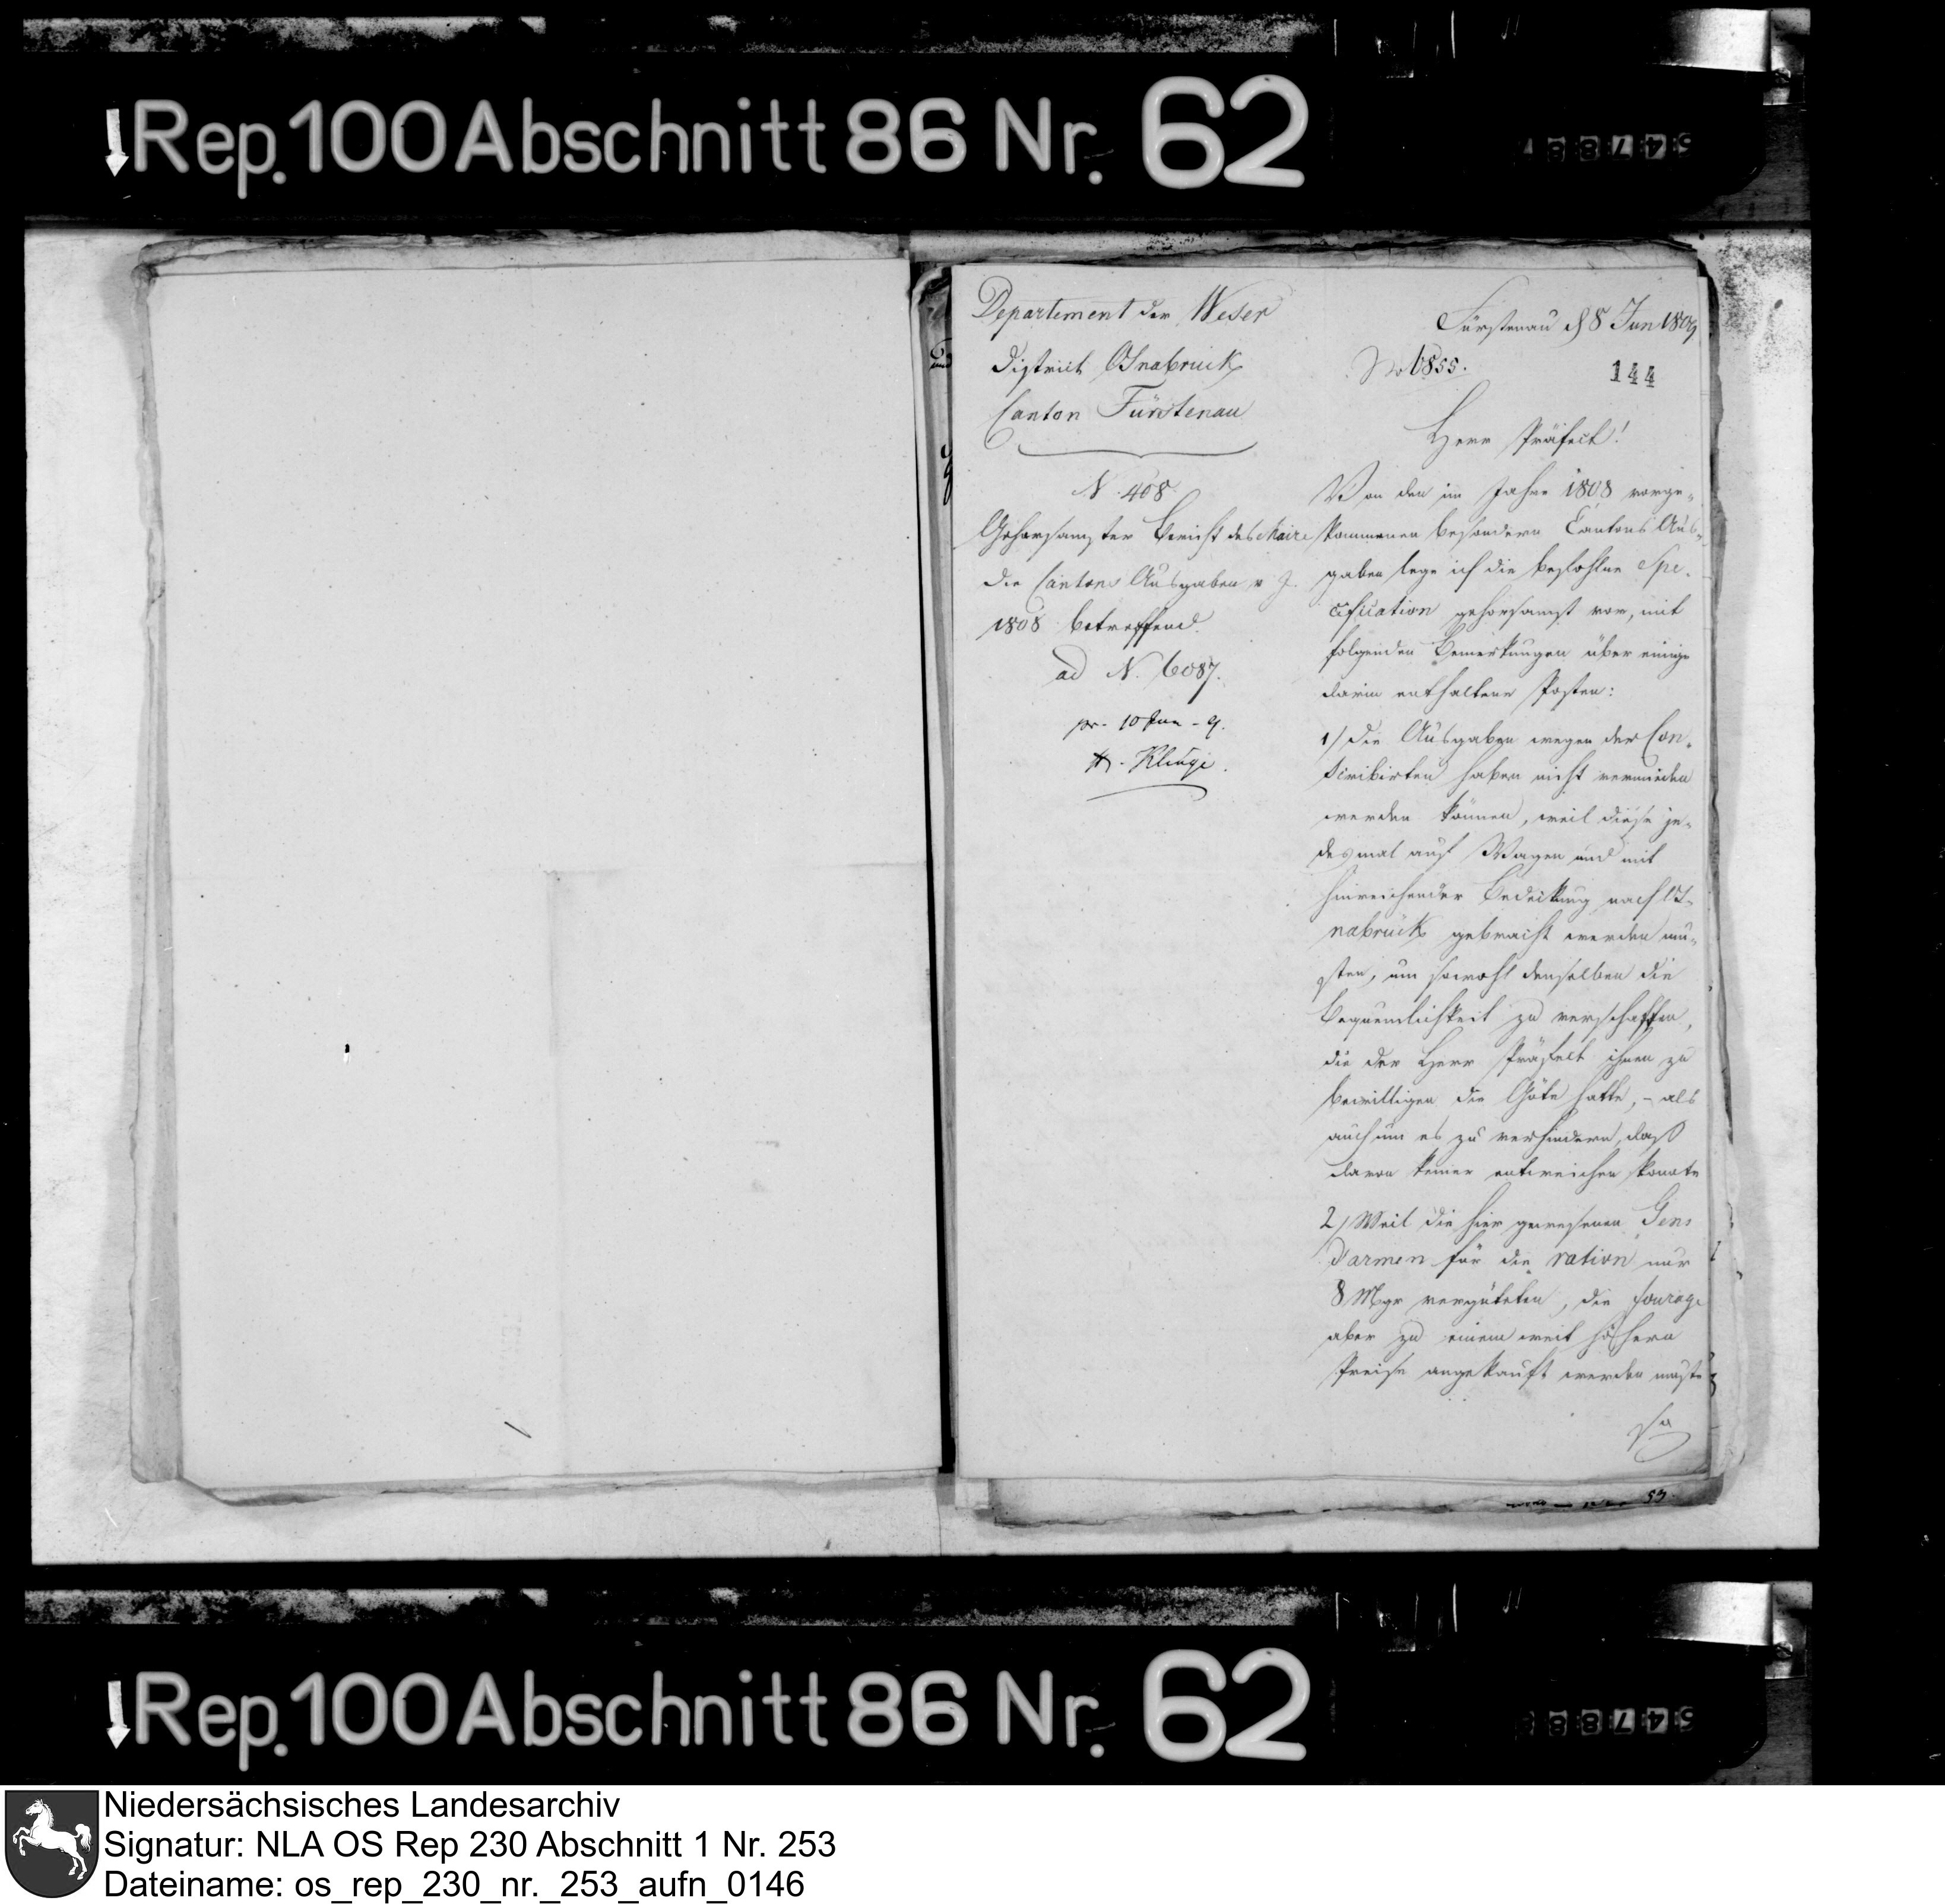 Rep. 100 Abschnitt 86 Nr. 62
Departement der Weser
District Osnabrück
Canton Fürstenau
N. 408
Gehorsamster Bericht des Maire
die Cantons Ausgaben v J.
1808 betreffend.
ad N. 6087.
pr. 10 Jun - 9.
Kluge.
Fürstenau d 8 Jun 1809
No 6855.
144
Herr Präfect!
Von den im Jahre 1808 vorge-
kommenen besondern Cantons Aus-
gaben lege ich die befohlne Spe-
cification gehorsamst vor, mit
folgenden Bemerkungen über einige
darin enthaltene Posten:
1) die Ausgaben wegen der Con-
scribirten haben nicht vermieden
werden können, weil diese je-
desmal auf Wagen und mit
hinreichender Bedeckung nach Os-
nabrück gebracht werden mu-
sten, um sowohl denselben die
Bequemlichkeit zu verschaffen,
die der Herr Präfekt ihnen zu
bewilligen die Güte hatte, - als
auch um es zu verhindern, daß
davon keiner entweichen konnte
2) Weil die hier gewesenen Gens
d'armen für die ration nur
8 Mgr vergüteten, die fourage
aber zu einem weit höhern
Preise angekauft werden muste
so
53
Rep. 100 Abschnitt 86 Nr. 62
Niedersächsisches Landesarchiv
Signatur: NLA OS Rep 230 Abschnitt 1 Nr. 253
Dateiname: os_rep_230_nr._253_aufn_0146